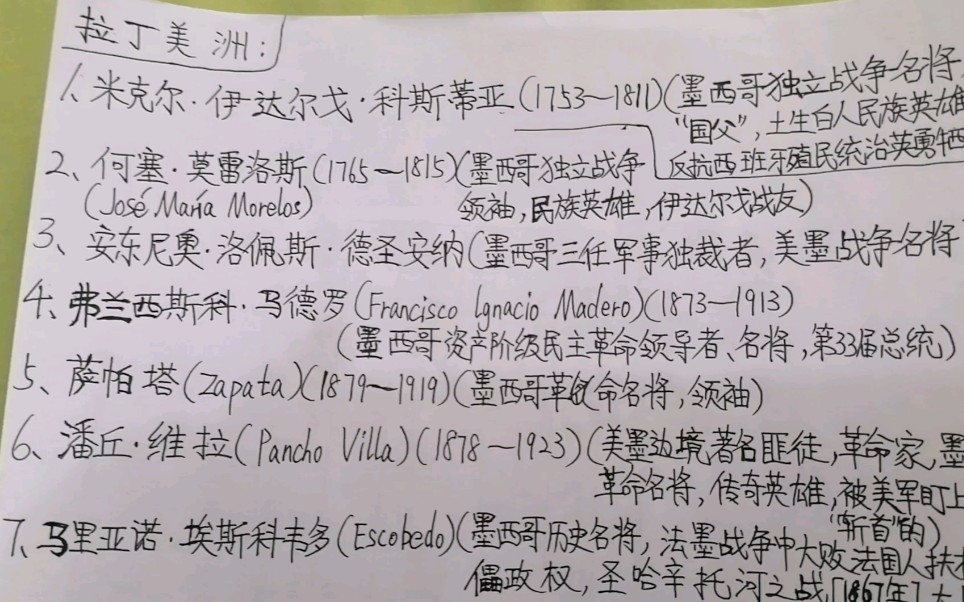 拉丁美洲:
1、米克尔·伊达尔戈·科斯蒂亚(1753~1811)(墨西哥独立战争名将,
“国父”,土生白人民族英雄
反抗西班牙殖民统治英勇牺
2、何塞·莫雷洛斯(1765~1815)(墨西哥独立战争
(José María Morelos) 领袖,民族英雄,伊达尔戈战友)
3、安东尼奥·洛佩斯·德圣安纳(墨西哥三任军事独裁者,美墨战争名将
4、弗兰西斯科·马德罗(Francisco Ignacio Madero)(1873—1913)
(墨西哥资产阶级民主革命领导者、名将,第33届总统)
5、萨帕塔(Zapata)(1879~1919)(墨西哥革命名将,领袖)
6、潘丘·维拉(Pancho Villa)(1878~1923)(美墨边境著名匪徒,革命家,墨
革命名将,传奇英雄,被美军盯上
“斩首”的)
7、马里亚诺·埃斯科韦多(Escobedo)(墨西哥历史名将,法墨战争中大败法国人扶植
傀政权,圣哈辛托河之战[1867年]大